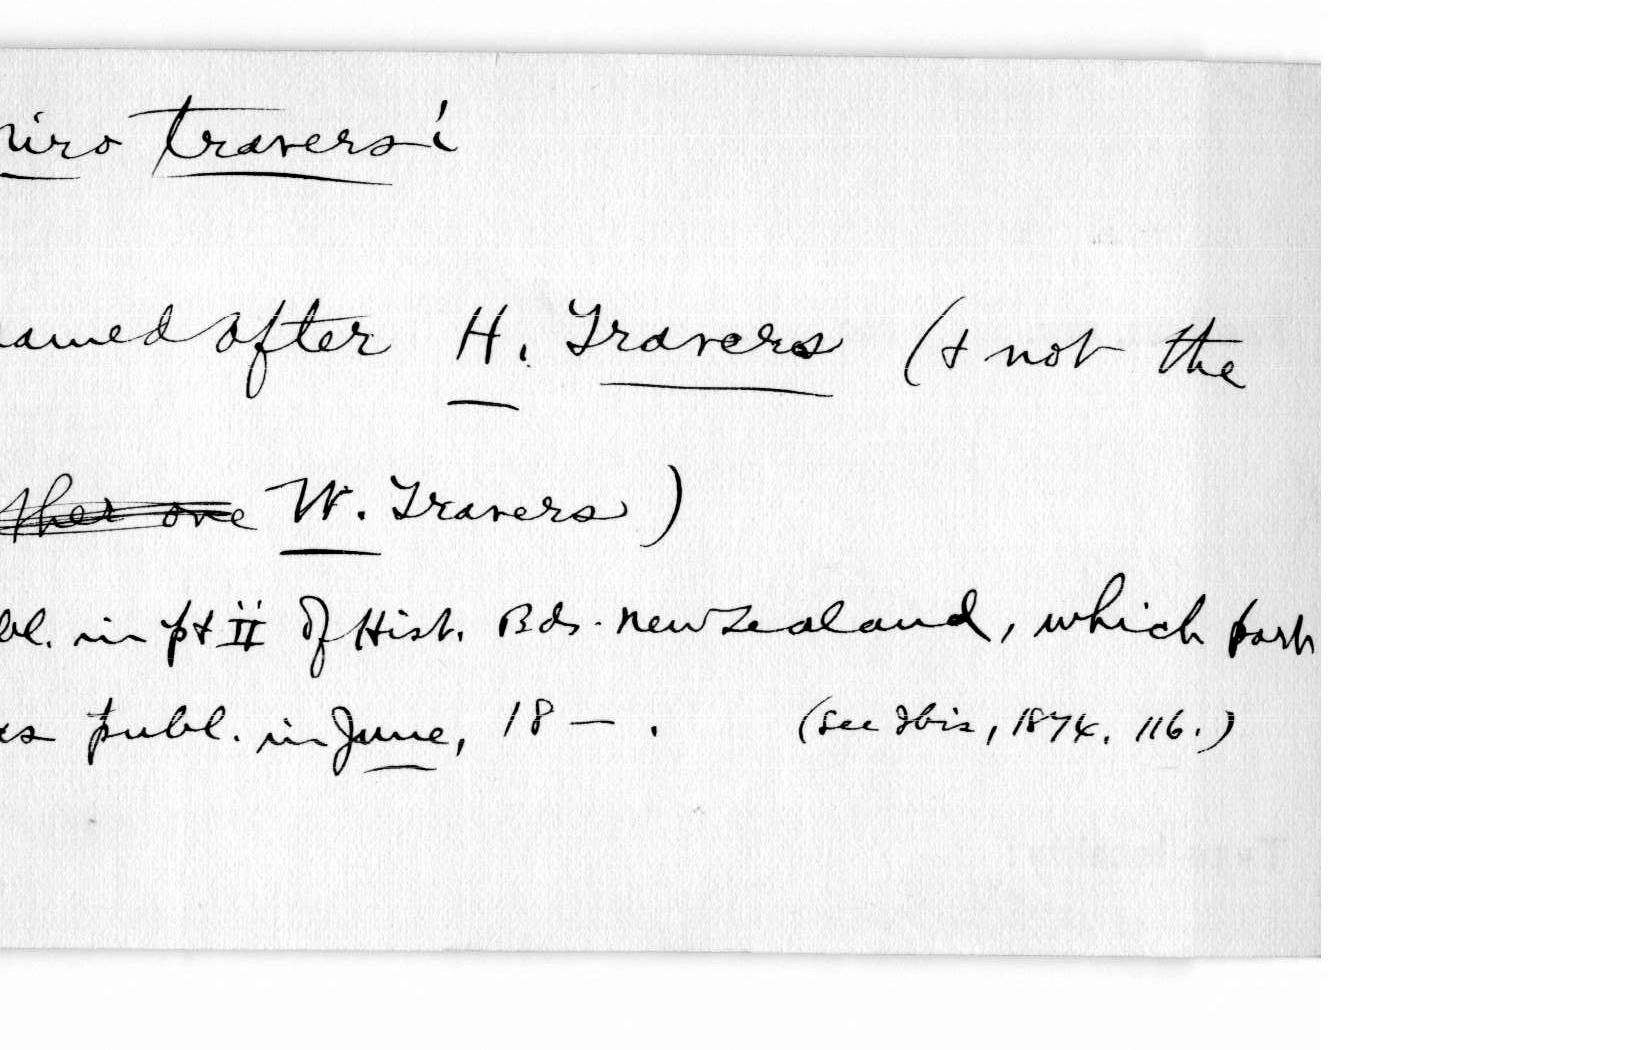 niro traversi
named after H. Travers (& not the
ther one W. Travers)
bl. in pt II of Hist. Bds. New Zealand, which part
as publ. in June, 18 — . (see Ibis, 1874. 116.)